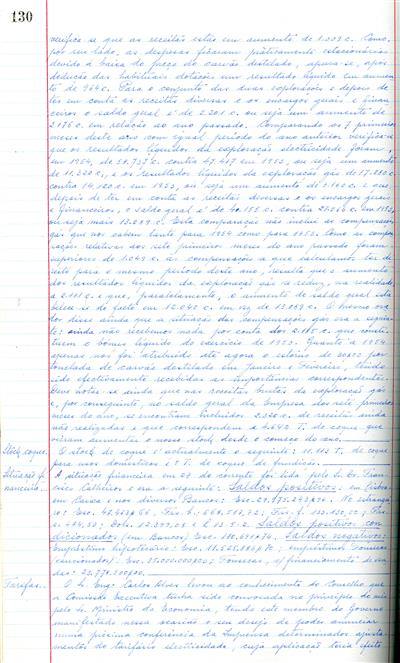 130
verifica-se que as receitas estão em aumento de 1.009 c. Como,
por seu lado, as despesas ficaram pràticamente estacionárias
devido à baixa do preço do carvão destilado, apura-se, após
dedução das habituais dotações um resultado líquido em aumen
to de 964 c. Para o conjunto das duas explorações e depois de
ter em conta as receitas diversas e os encargos gerais e finan
ceiros o saldo geral é de 2.201 c. ou seja um aumento de
2.176 c. em relação ao ano passado. Comparando os 7 primeiros
meses deste ano com igual período do ano anterior verifica-se
que os resultados líquidos da exploração electricidade foram,
em 1954, de 58.737 c. contra 47.417 em 1953, ou seja um aumento
de 11.320 c., e os resultados líquidos da exploração gás de
contra 14.120 c. em 1953, ou seja um aumento de e que
depois de ter em conta as receitas diversas e os encargos gerais
e financeiros, o saldo geral é de contra em 1953,
ou seja mais 13.009 c. Esta comparação não inclui as compensações
gás que nos cabem tanto para 1954 como para 1953. Como as compen
sações relativas aos sete primeiros meses do ano passado foram
superiores de 1.049 c. às compensações a que calculamos ter di
reito para o mesmo período deste ano, resulta que o aumento
dos resultados líquidos da exploração gás se reduz, na realidade,
a 2.111 c. e que, paralelamente, o aumento do saldo geral esta
belece-se de facto em c. em vez de 13.009 c. O mesmo ora
dor disse ainda que a situação das compensações gás era a seguin
te: ainda não recebemos nada por conta dos 2.115 c. que consti
tuem o bónus líquido do exercício de 1953. Quanto a 1954
apenas nos foi atribuído até agora o estorno de por
tonelada de carvão destilado em Janeiro e Fevereiro, tendo
sido efectivamente recebidas as importâncias correspondentes.
Deve notar-se ainda que nas receitas brutas da exploração gás
e, por conseguinte, no saldo geral da Empresa dos sete primeiros
meses do ano, se encontram incluídos 2.320 c. de receitas ainda
não realizadas e que correspondem a 4.642 T. de coque que
vieram aumentar o nosso stock desde o começo do ano.
Stock coque. O stock de coque é actualmente o seguinte: 11.113 T. de coque
para usos domésticos e T. de coque de fundição.
Situação fi
nanceira. A situação financeira em 24 do corrente foi lida pelo S. Dr. Fran
cisco e era a seguinte: Saldos positivos: em Cofre,
em Caixa e nos diversos Bancos: Esc. No estrangei
ro: Esc.
Saldos positivos con
dicionados (em Bancos) Esc. Saldos negativos:
Empréstimo hipotecário: Esc. empréstimo
(caucionados): Esc. Fonsecas, c/ financiamento
Tarifas. O S. Eng. Carlos Alves levou ao conhecimento do Conselho que
a Comissão Executiva tinha sido convocada no princípio do mês
pelo S. Ministro da Economia, tendo este membro do Governo
manifestado nessa ocasião o seu desejo de poder anunciar
numa próxima conferência da Imprensa determinados ajusta
mentos do tarifário electricidade, cuja aplicação teria efeito